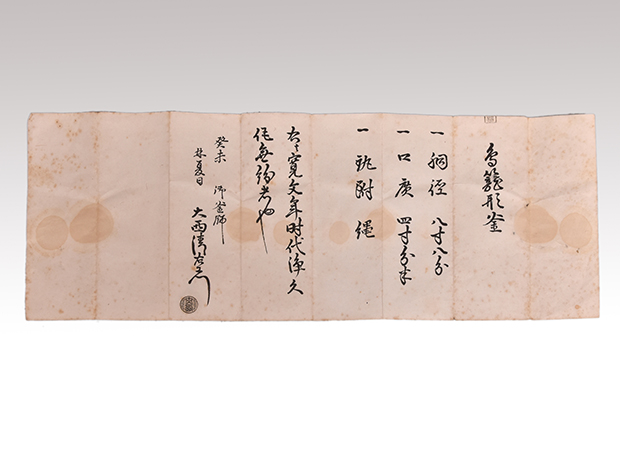 鳥籠形釜
一 胴径 八寸八分
一 口廣 四寸分半
一 鈪附 縄
右ハ寛文年时代浄久
作無紛者也
癸未 御釜師
林夏日 大西清右衛門